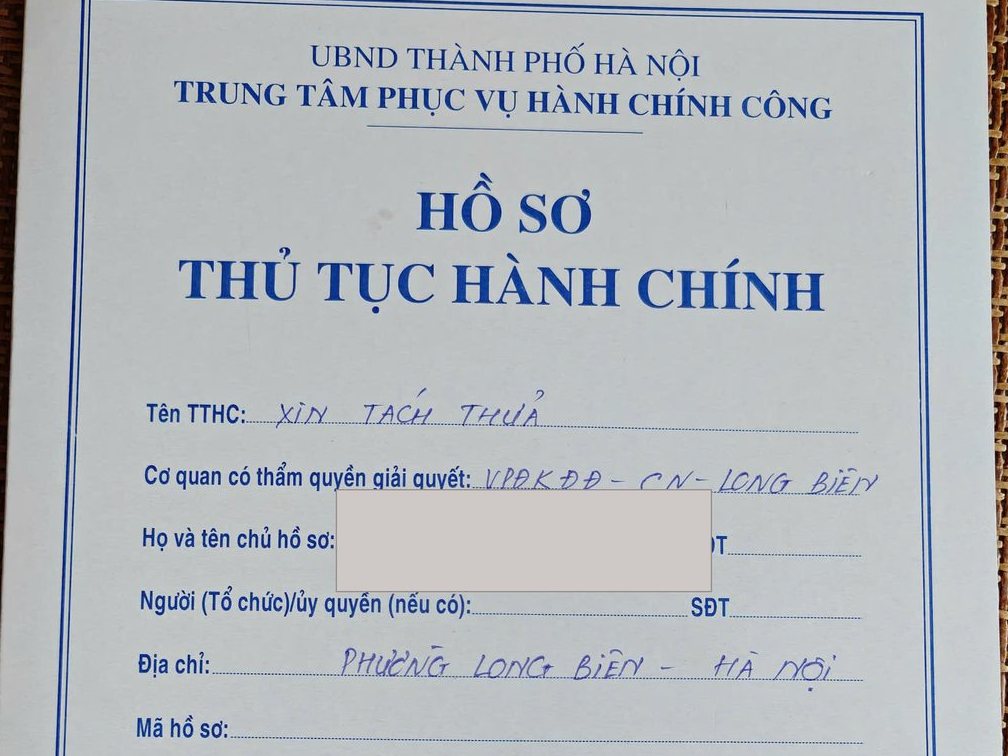 UBND THÀNH PHỐ HÀ NỘI
TRUNG TÂM PHỤC VỤ HÀNH CHÍNH CÔNG
HỒ SƠ
THỦ TỤC HÀNH CHÍNH
Tên TTHC: XIN TÁCH THỬA
Cơ quan có thẩm quyền giải quyết: VPĐKĐĐ - CN - LONG BIÊN
Họ và tên chủ hồ sơ:
Người (Tổ chức)/ủy quyền (nếu có): SĐT
Địa chỉ: PHƯỜNG LONG BIÊN - HÀ NỘI
Mã hồ sơ: